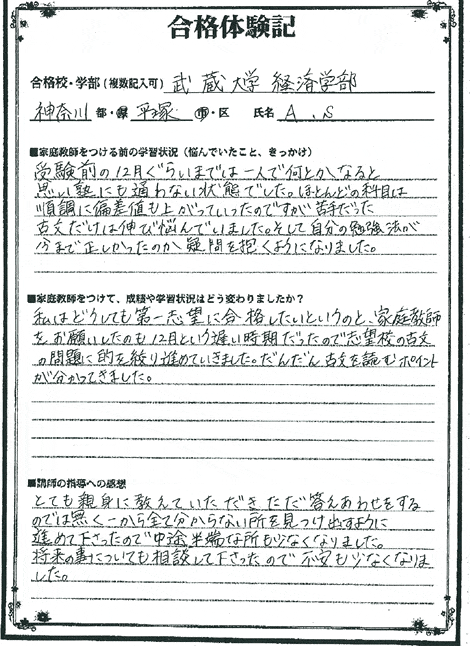 合格体験記
合格校・学部（複数記入可） 武蔵大学 経済学部
神奈川 都・県 平塚 市・区 氏名 A.S
■家庭教師をつける前の学習状況（悩んでいたこと、きっかけ）
受験前の12月ぐらいまでは一人で何とかなると
思い塾にも通わない状態でした。ほとんどの科目は
順調に偏差値も上がっていったのですが苦手だった
古文だけは伸び悩んでいました。そして自分の勉強法が
今まで正しかったのか疑問を抱くようになりました。
■家庭教師をつけて、成績や学習状況はどう変わりましたか？
私はどうしても第一志望に合格したいというのと、家庭教師
をお願いしたのも12月という遅い時期だったので志望校の古文
の問題に的を絞り進めていきました。だんだん古文を読むポイント
が分かってきました。
■講師の指導への感想
とても親身に教えていただきただ答えあわせをする
のでは無く一から全て分からない所を見つけ出すように
進めて下さったので中途半端な所も少なくなりました。
将来の事についても相談して下さったので不安も少なくなりま
した。